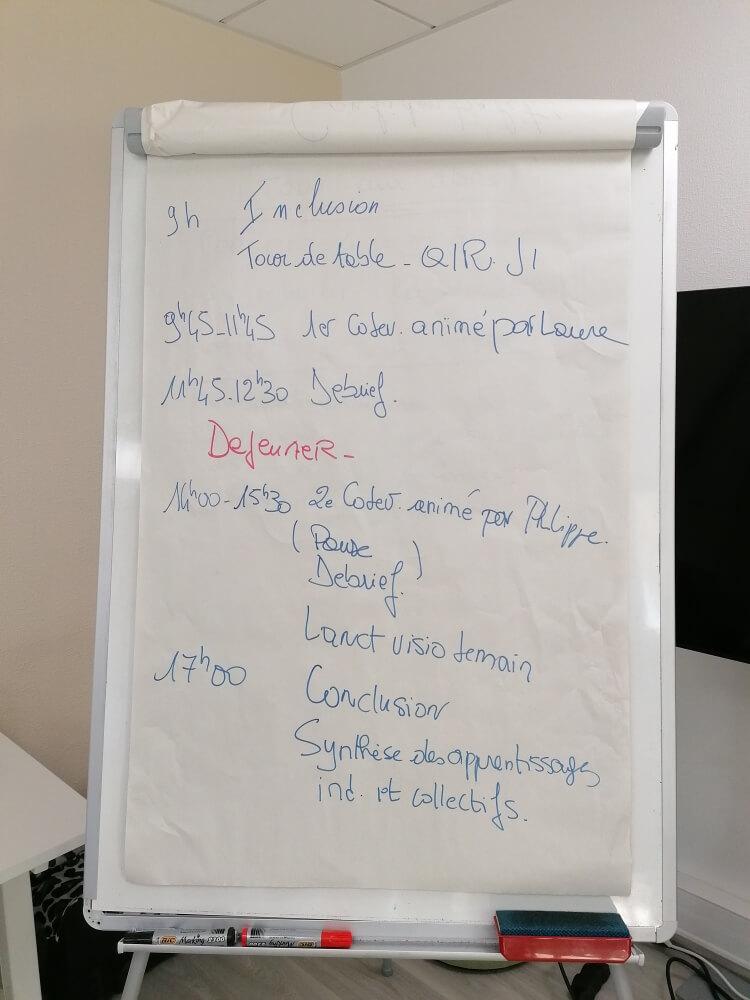 9h Inclusion
Tour de table - Q/R. J1
9h45-11h45 1er Codev. animé par Laure
11h45-12h30 Debrief.
DejeuNeR-
14h00-15h30 2e Codev. animé par Philippe.
(Pause
Debrief.)
Lanct visio demain
17h00 Conclusion
Synthèse des apprentissages
ind. et collectifs.
BIC Marking 2300
BIC Marking